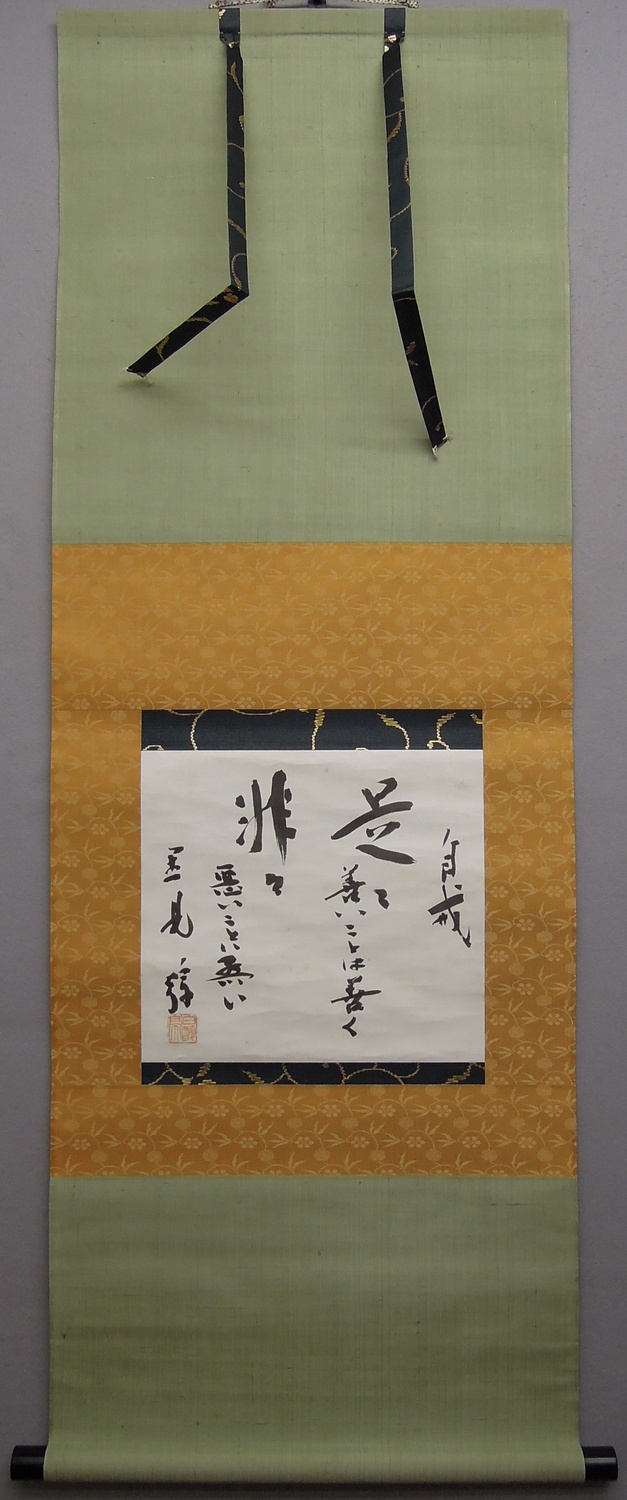 自戒
是々
善いことは善く
非々
悪いことは悪い
里見弴